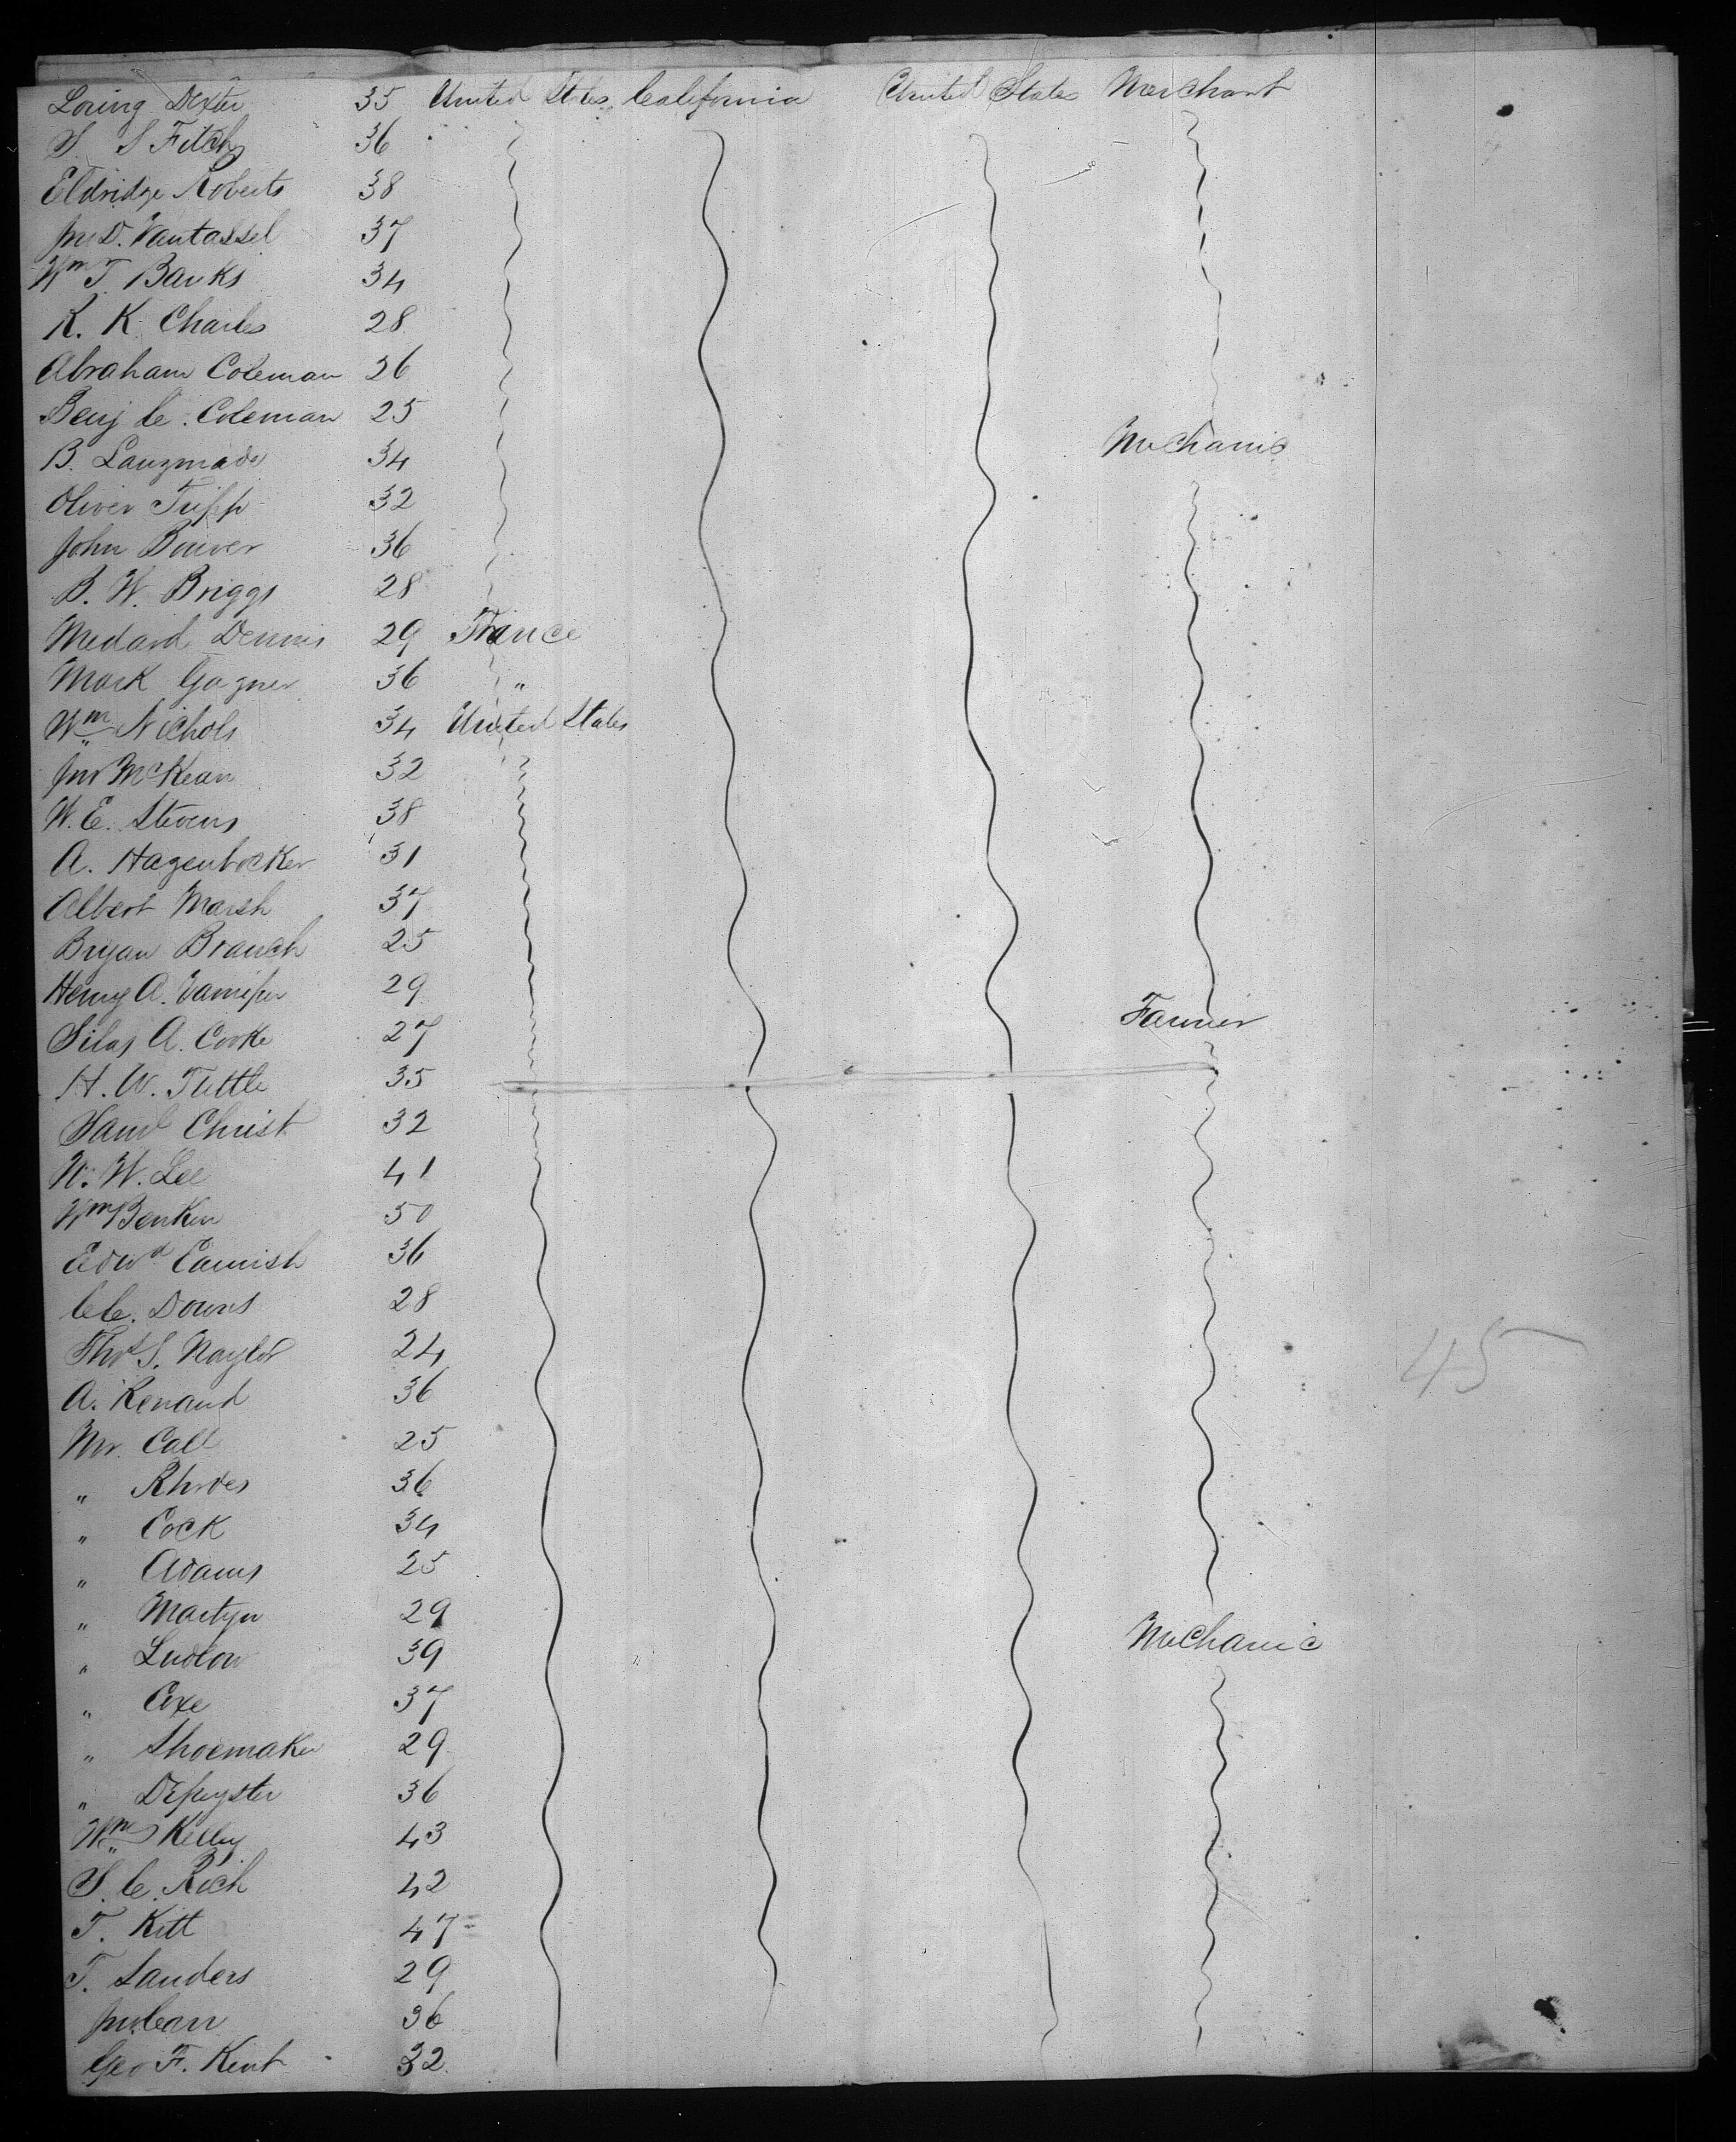 Loring Dexter 35 United States California United States Merchant
S. S Fitch 36
Eldridge Roberts 38
Jno D. Vantassel 37
Wm T. Banks 34
R. K. Charles 28
Abraham Coleman 26
Benj C. Coleman 25
B. Langmade 34 Mechanic
Oliver Tripp 32
John Bower 36
B. W. Briggs 28
Medard Dennis 29 France
Mark Gagner 36 "
Wm Nichols 34 United States
Jno McKean 32
W. E. Stevens 38
A. Hagenbocker 31
Albert Marsh 37
Bryan Branch 25
Henry A. 29
Silas A. Cooke 27 Farmer
H. W. Tuttle 35
Saml Christ 32
W. W. Lee 41
Wm Benken 50
Edwd Camish 36
C. C. Downs 28
Thos S. Naylor 24
A. Renaud 36
Mr. Call 25
" Rhodes 36
" Cock 34
" Adams 25
" Martyn 29
" Ludlow 39 Mechanic
" Coxe 37
" Shoemaker 29
" Depeyster 36
Wm Kelley 43
S. C. Rich 42
T. Kitt 47
T. Sanders 29
Jno Carr 36
Geo F. Kent 32
45